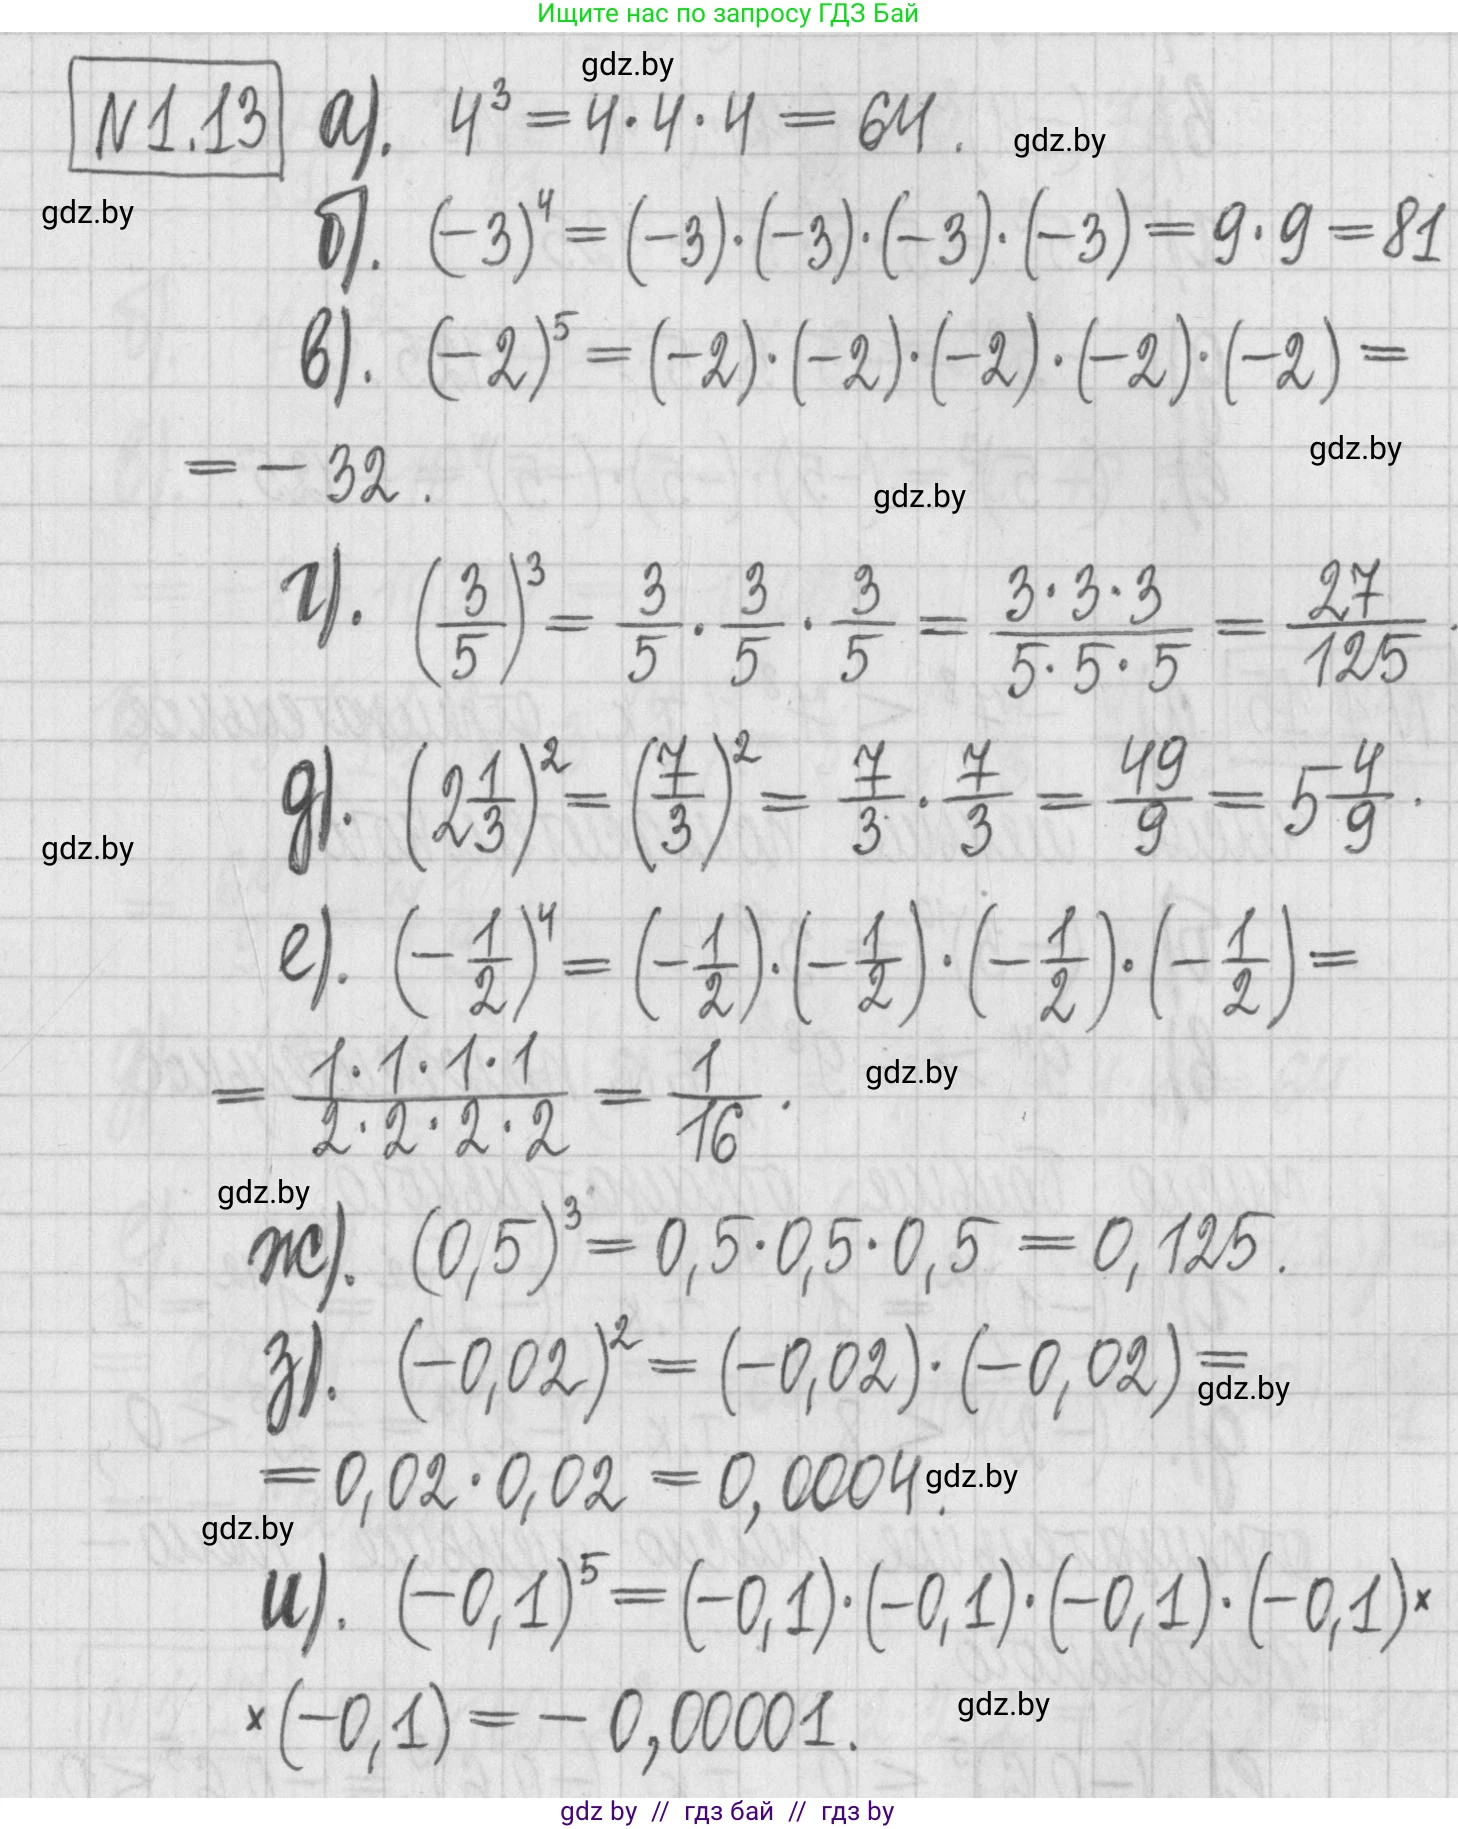 Ищите нас по запросу ГДЗ Бай
gdz.by
N1.13 а). 4³ = 4·4·4 = 64.
gdz.by
gdz.by
б). (−3)⁴ = (−3)·(−3)·(−3)·(−3) = 9·9 = 81
в). (−2)⁵ = (−2)·(−2)·(−2)·(−2)·(−2) =
gdz.by
= − 32.
gdz.by
г). (3/5)³ = 3/5 · 3/5 · 3/5 = 3·3·3/5·5·5 = 27/125.
д). (2 1/3)² = (7/3)² = 7/3 · 7/3 = 49/9 = 5 4/9.
gdz.by
е). (−1/2)⁴ = (−1/2)·(−1/2)·(−1/2)·(−1/2) =
= 1·1·1·1/2·2·2·2 = 1/16.
gdz.by
gdz.by
ж). (0,5)³ = 0,5·0,5·0,5 = 0,125.
з). (−0,02)² = (−0,02)·(−0,02) =
gdz.by
= 0,02·0,02 = 0,0004.
gdz.by
gdz.by
и). (−0,1)⁵ = (−0,1)·(−0,1)·(−0,1)·(−0,1)×
×(−0,1) = − 0,00001.
gdz.by
gdz by // гдз бай // гдз by